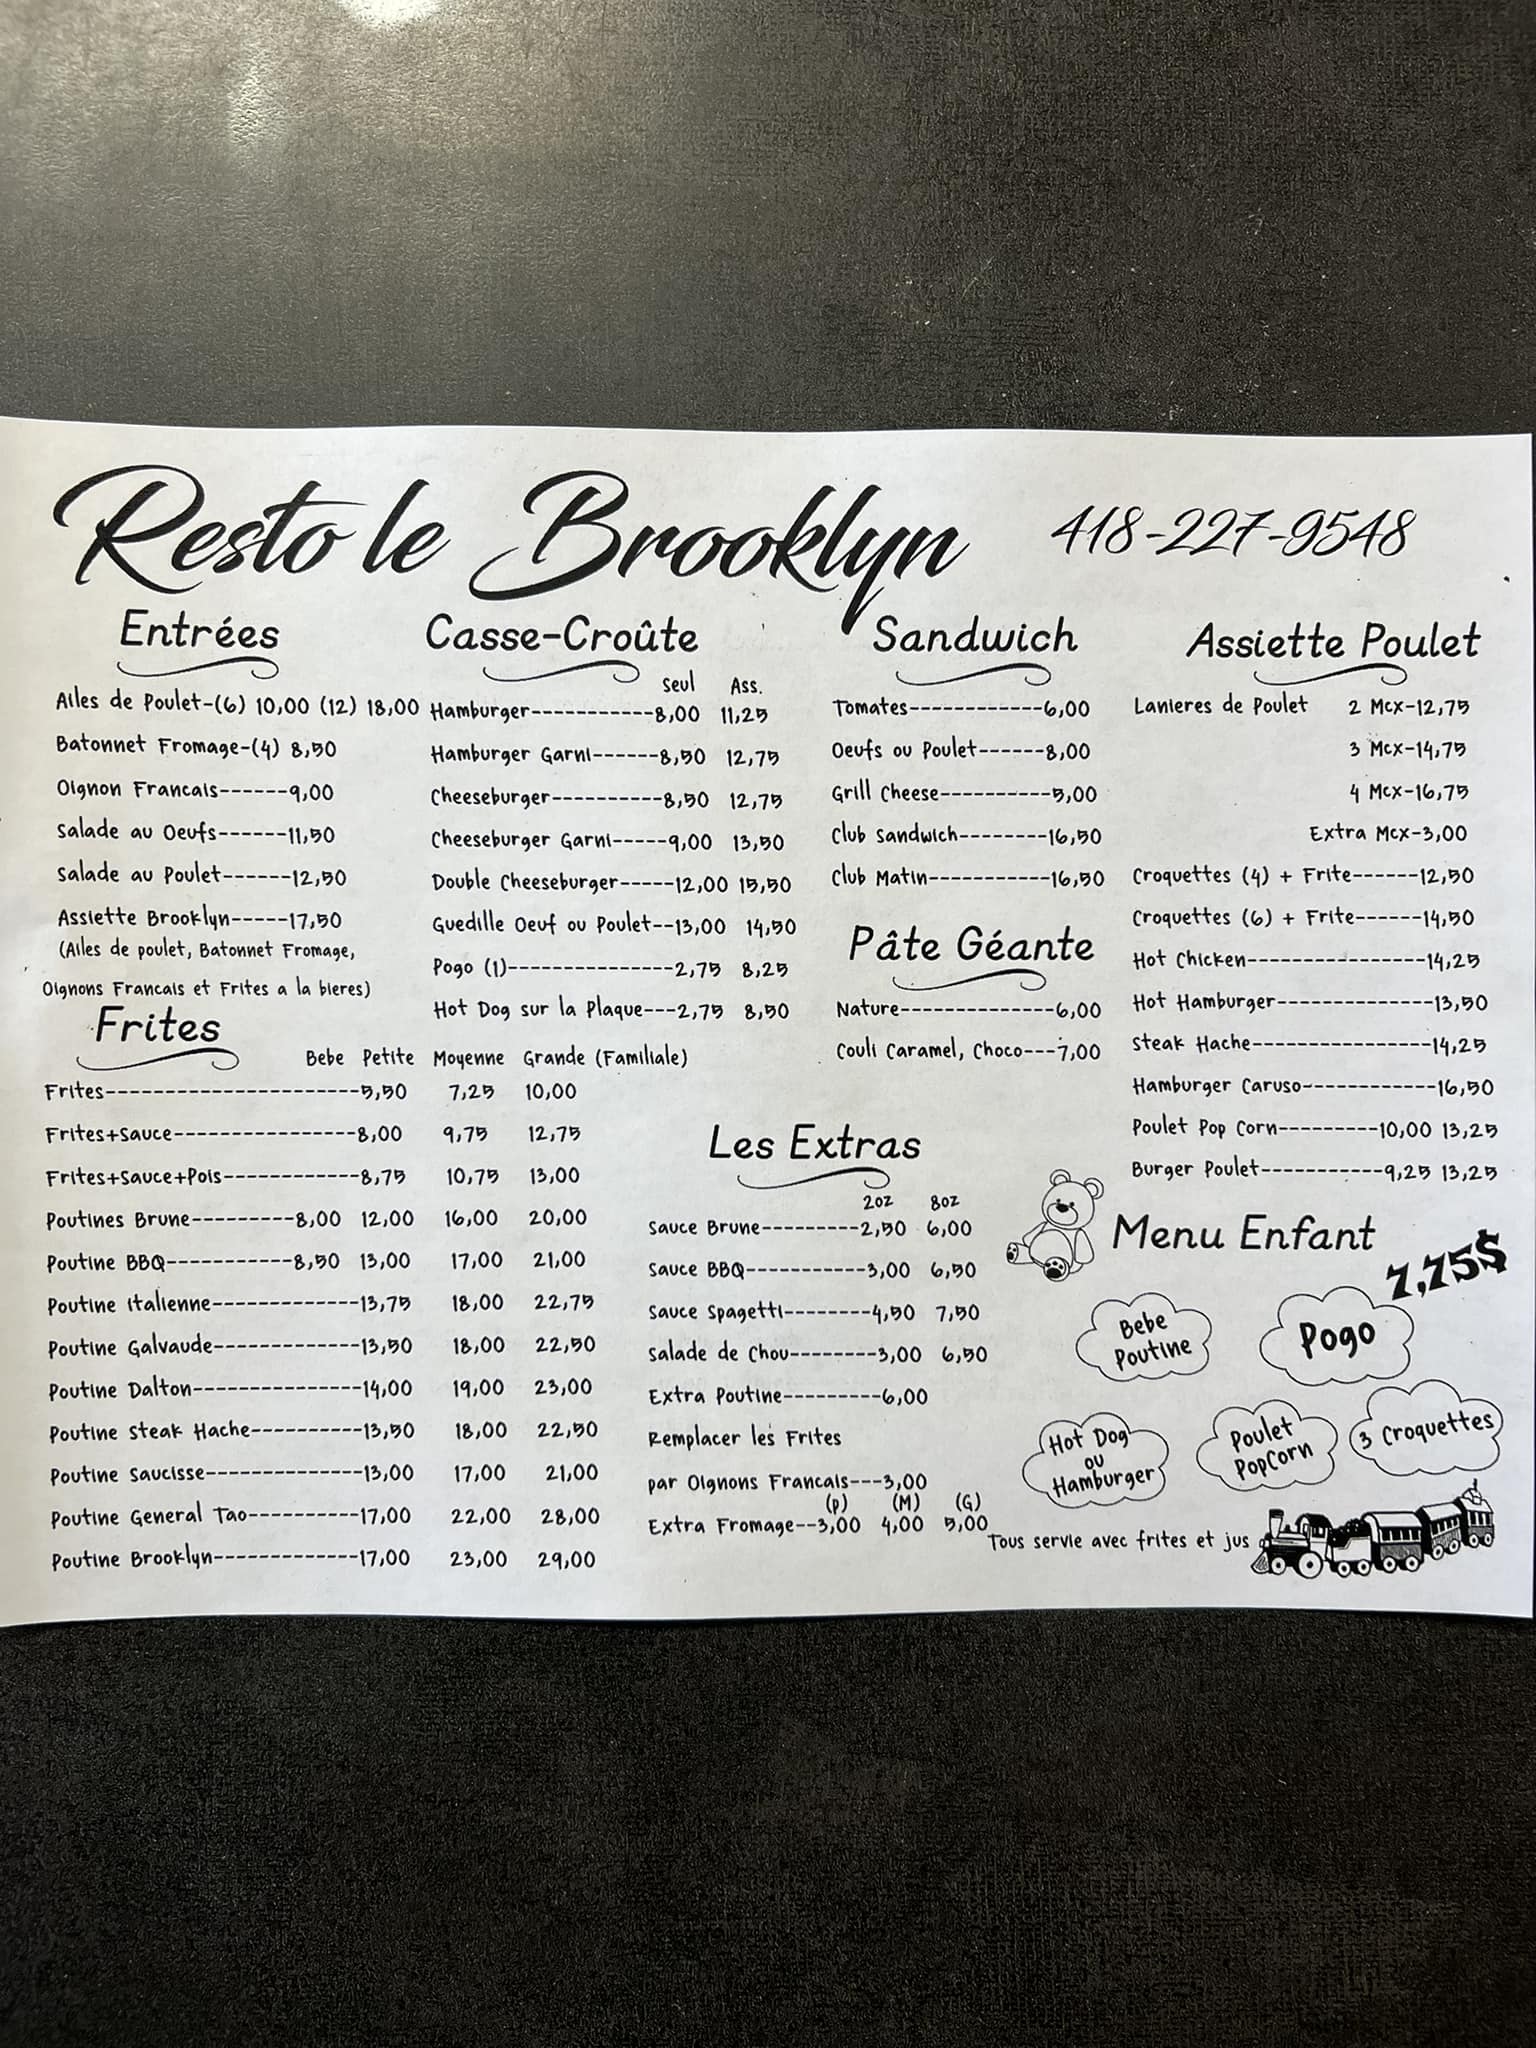 Resto le Brooklyn 418-227-9548
Entrées
Ailes de Poulet-(6) 10,00 (12) 18,00
Batonnet Fromage-(4) 8,50
Oignon Francais------9,00
Salade au Oeufs------11,50
Salade au Poulet------12,50
Assiette Brooklyn-----17,50
(Ailes de poulet, Batonnet Fromage,
Oignons Francais et Frites a la bieres)
Casse-Croûte
Seul Ass.
Hamburger-----------8,00 11,25
Hamburger Garni------8,50 12,75
Cheeseburger----------8,50 12,75
Cheeseburger Garni-----9,00 13,50
Double Cheeseburger-----12,00 15,50
Guedille Oeuf ou Poulet--13,00 14,50
Pogo (1)---------------2,75 8,25
Hot Dog sur la Plaque---2,75 8,50
Sandwich
Tomates------------6,00
Oeufs ou Poulet------8,00
Grill Cheese----------5,00
Club Sandwich--------16,50
Club Matin-----------16,50
Pâte Géante
Nature--------------6,00
Couli Caramel, Choco---7,00
Assiette Poulet
Lanieres de Poulet 2 Mcx-12,75
3 Mcx-14,75
4 Mcx-16,75
Extra Mcx-3,00
Croquettes (4) + Frite------12,50
Croquettes (6) + Frite------14,50
Hot Chicken----------------14,25
Hot Hamburger--------------13,50
Steak Hache----------------14,25
Hamburger Caruso------------16,50
Poulet Pop Corn---------10,00 13,25
Burger Poulet-----------9,25 13,25
Frites
Bebe Petite Moyenne Grande (Familiale)
Frites-----------------------5,50 7,25 10,00
Frites+Sauce----------------8,00 9,75 12,75
Frites+Sauce+Pois------------8,75 10,75 13,00
Poutines Brune---------8,00 12,00 16,00 20,00
Poutine BBQ-----------8,50 13,00 17,00 21,00
Poutine Italienne-------------13,75 18,00 22,75
Poutine Galvaude-------------13,50 18,00 22,50
Poutine Dalton---------------14,00 19,00 23,00
Poutine Steak Hache----------13,50 18,00 22,50
Poutine Saucisse--------------13,00 17,00 21,00
Poutine General Tao----------17,00 22,00 28,00
Poutine Brooklyn-------------17,00 23,00 29,00
Les Extras
2oz 8oz
Sauce Brune---------2,50 6,00
Sauce BBQ-----------3,00 6,50
Sauce Spagetti--------4,50 7,50
Salade de Chou--------3,00 6,50
Extra Poutine---------6,00
Remplacer les Frites
par Oignons Francais---3,00
(P) (M) (G)
Extra Fromage--3,00 4,00 5,00
Menu Enfant
7,75$
Bebe
Poutine
Pogo
Hot Dog
ou
Hamburger
Poulet
PopCorn
3 Croquettes
Tous servie avec frites et jus